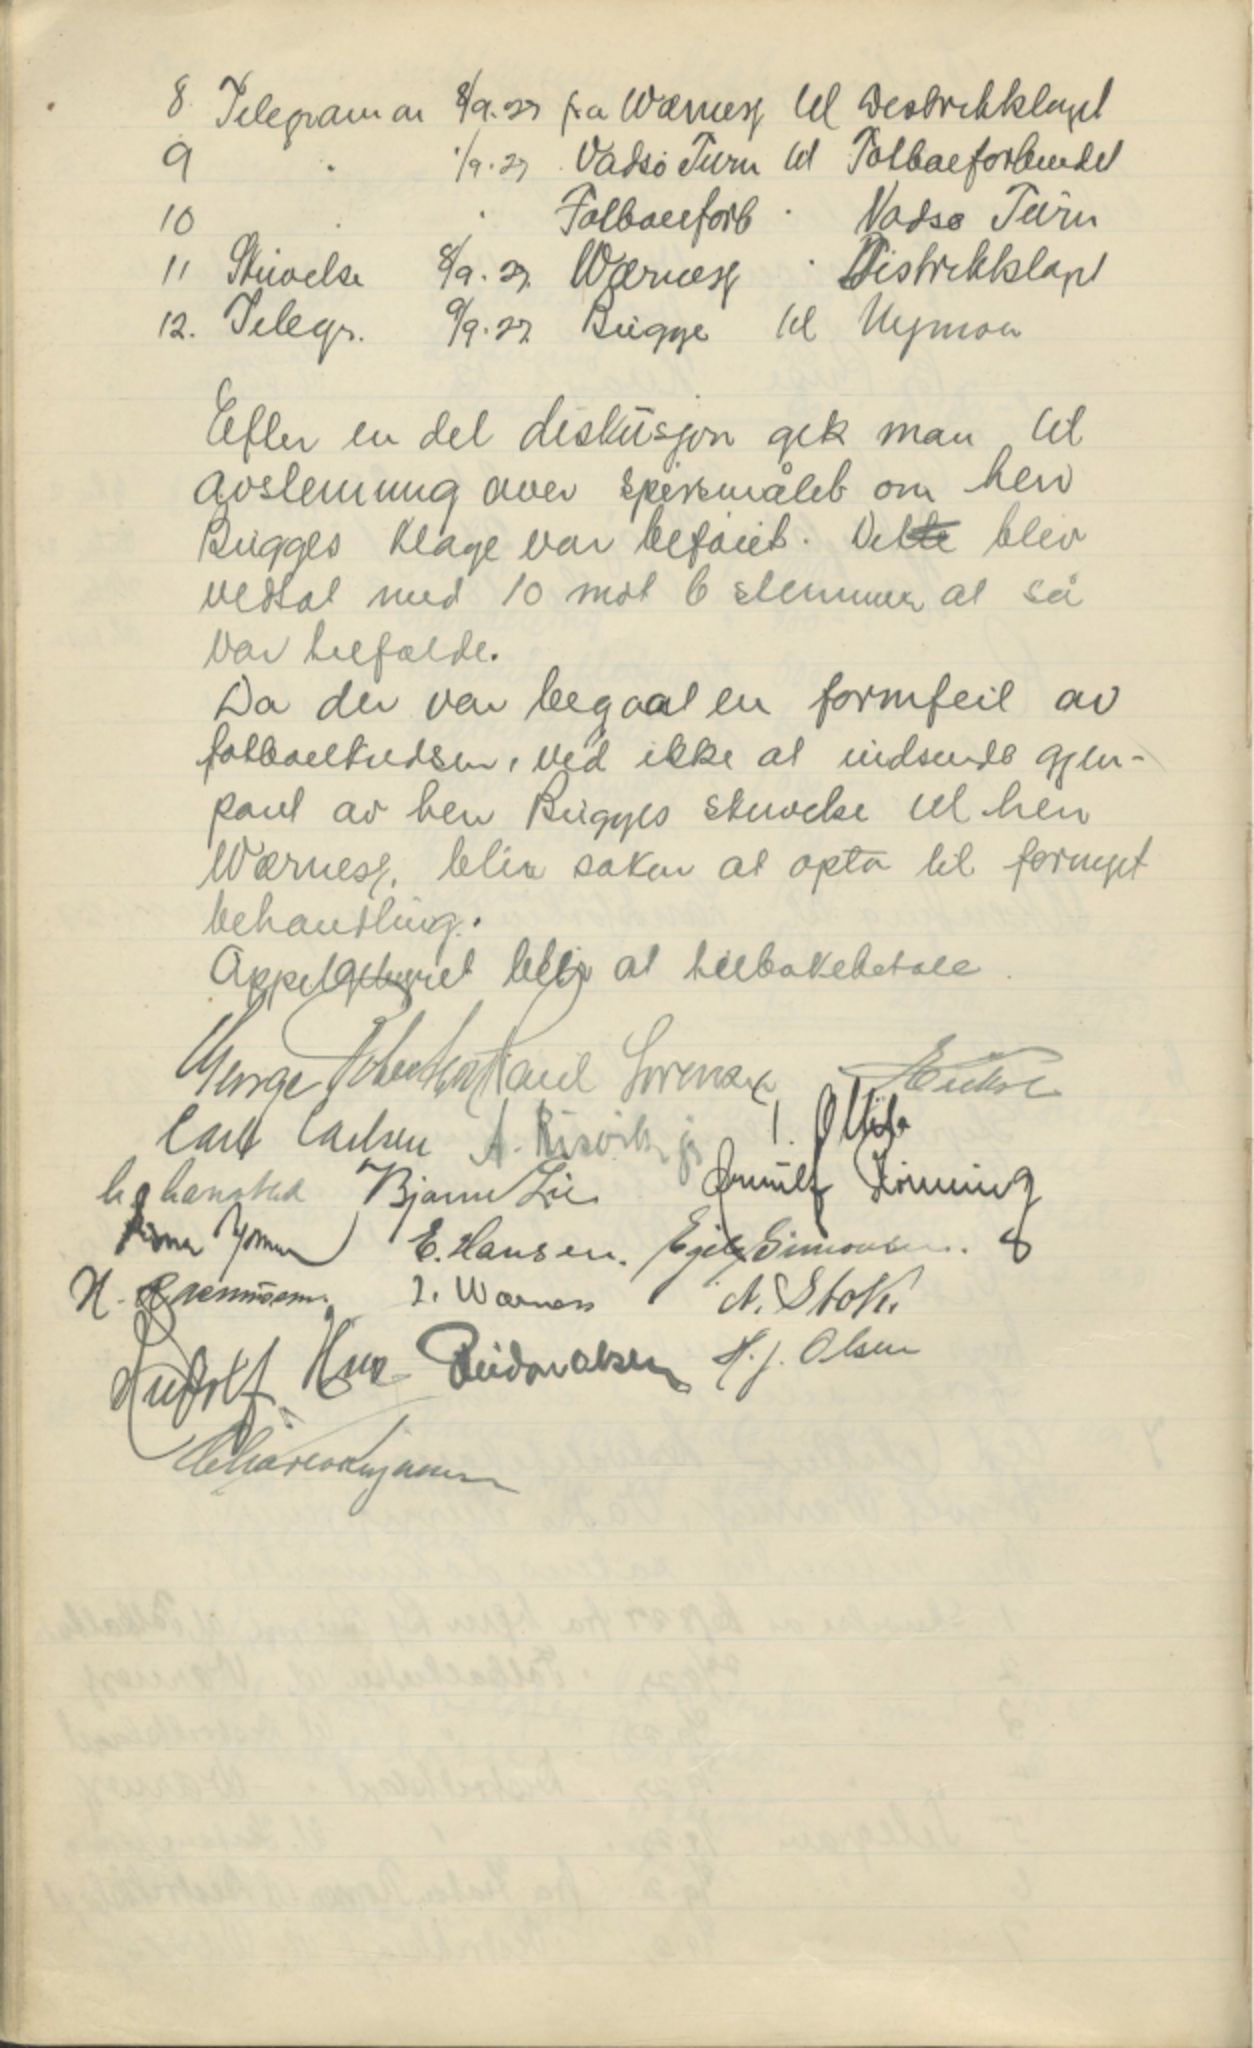 8 Telegram av 8/9.27 fra Wærnesf til Distriktslaget
9 " /9.27 Vadsø Turn til Fotballforbundet
10 " " Fotballforb " Vadsø Turn
11 Skrivelse 8/9.27 Wærnesf " Distriktslaget
12. Telegr. 9/9.27 Bugge til Nymoen
Efter en del diskusjon gik man til
avstemning over spørsmålet om herr
Bugges klage var beføiet. Det blev
vedtat med 10 mot 6 stemmer at så
var tilfælde.
Da der var begaat en formfeil av
fotballkredsen, ved ikke at indsende gjen-
part av herr Bugges skrivelse til herr
Wærnesf. blir saken at opta til fornyet
behandling.
Appelgebyret blir at tilbakebetale
George Robertson Paul Sørensen
Carl Carlsen A. Risvik jr
Bjarne Lie Arnulf Rönning
E. Hansen. Egil Simonsen. 8
H. Rasmussen. I. Wærness A. Stok.
Rudolf Reidar Olsen H. J. Olsen